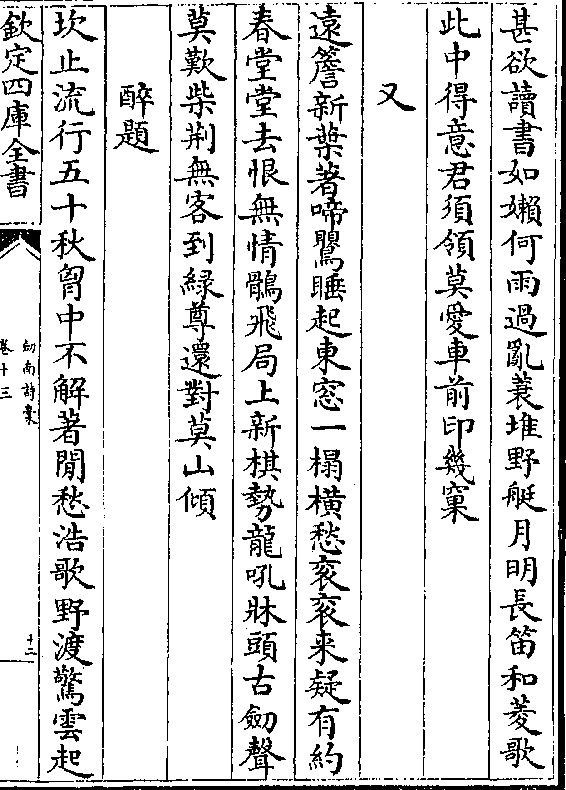 甚欲讀書如嬾何雨過亂蓑堆野艇月明長笛和菱歌
此中得意君須領莫愛車前印幾窠
又
遠簷新葉著啼鸎睡起東窓一榻橫愁衮衮来疑有約
春堂堂去恨無情鶻飛局上新棋勢龍吼牀頭古劒聲
莫歎柴荆無客到緑尊還對莫山傾
醉題
坎止流行五十秋胷中不解著閒愁浩歌野渡驚雲起
欽定四庫全書
劒南詩槀
卷十三
十二